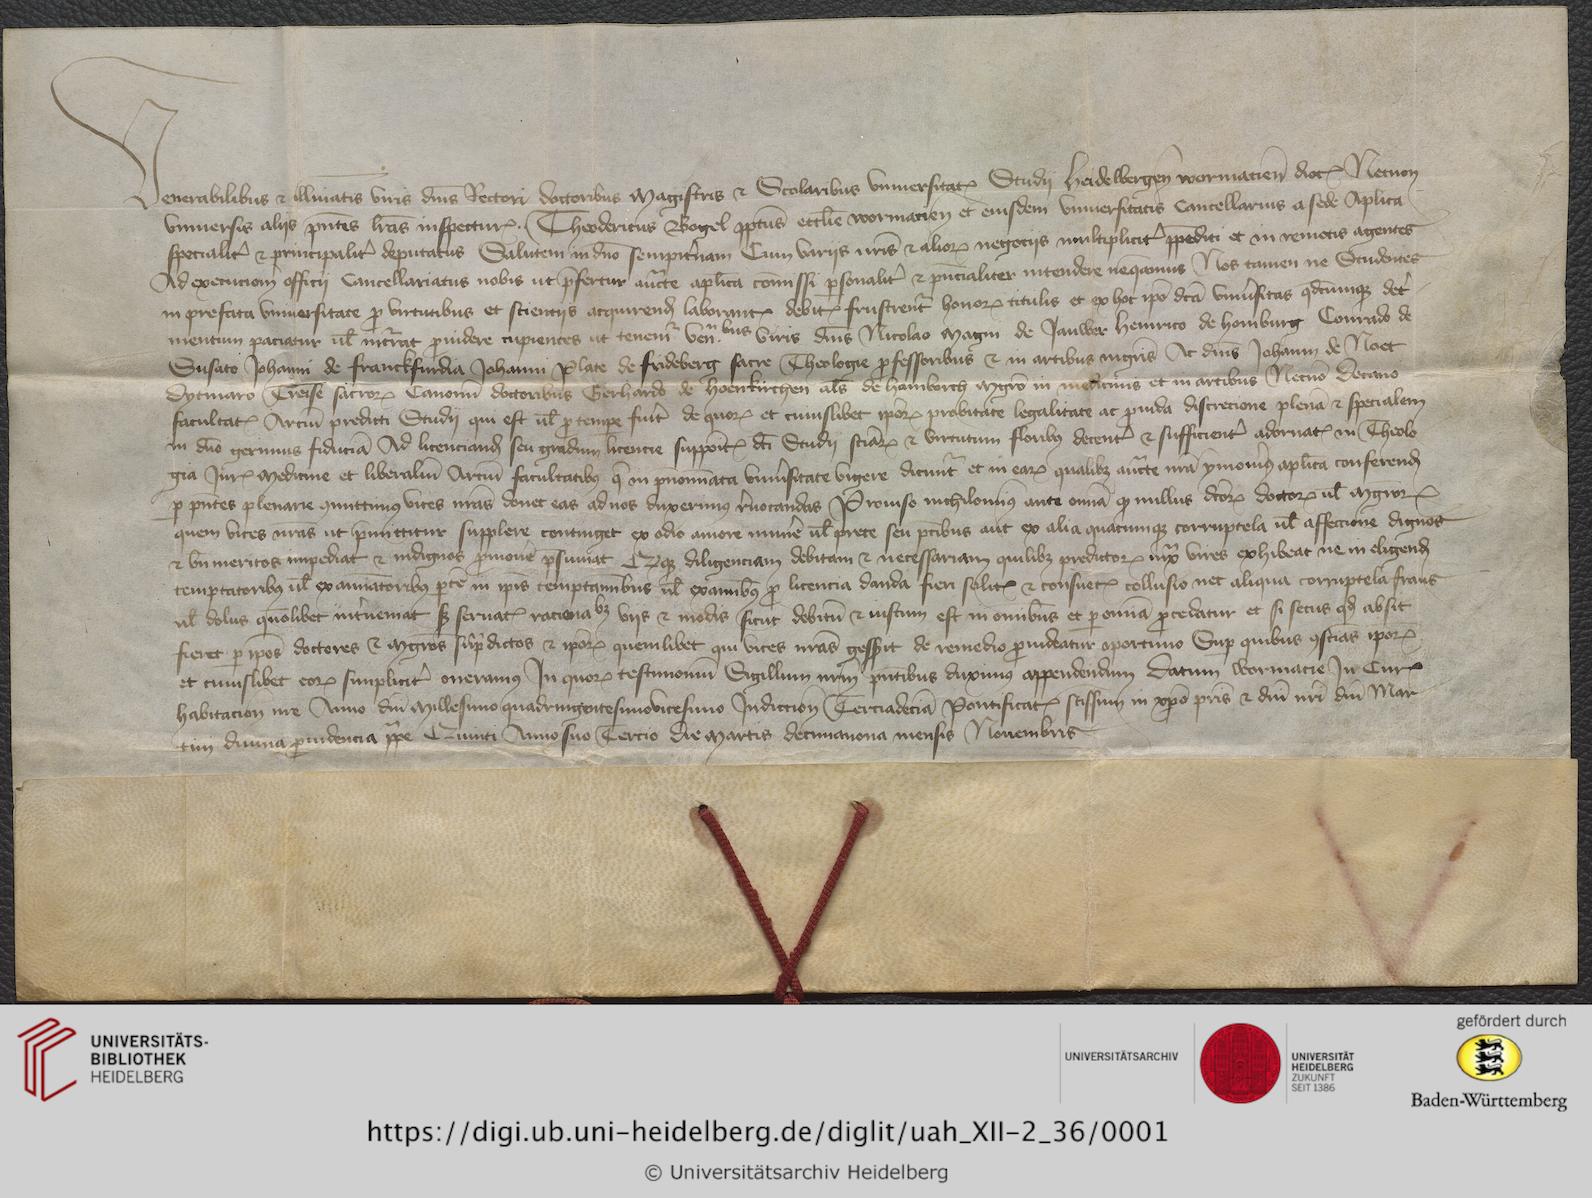 Venerabilibus et illuminatis viris dnis Rectori doctoribus Magistris et Scolaribus vniuersitatis Studij Heidelbergen wormacien dioc Necnon
vniuersis alijs pntes lras inspecturis Theodericus Bogel pptus ecclie wormacien et eiusdem vniuersitatis Cancellarius a sede Aplica
specialiter et principaliter deputatus Salutem in dno sempiternam Cum varijs nris et alior negocijs multipliciter ppediti et in remotis agentes
Ad execucionem officij Cancellariatus nobis ut prefertur aucte aplica comissi psonaliter et pncialiter intendere nequeamus Nos tamen ne Studentes
in prefata vniuersitate pro virtutibus et scientijs acquirend laborantes debitis frustrentur honor titulis et ex hoc ipo dca vniuersitas qdcumque detri
mentum paciatur ul incurrat prouidere cupientes ut tenemur venbus viris dnis Nicolao Magni de Jauwer Heinrico de homburg Conrado de
Susato Johanni de franckfurdia Johanni Plate de frideberg sacre Theologie pfessoribus et in artibus mgris Ac dnis Johann de Noet
Dytmaro Treise sacror Canonum doctoribus Gerhardo de Hoenkirchen als de hamborch mgro in medicinis et in artibus Necno Decano
facultatis Arcium predicti Studij qui est ul p tempore fuerit de quor et cuiuslibet ipor probitate legalitate ac prouida discrecione plena et specialem
in dno gerimus fiducia Ad licenciand seu gradum licencie dci Studij sciar et virtutum floribus decenter et sufficienter adornatis in Theolo
gia Jure Medicine et liberalium Arcium facultatibus que in pnominata vniuersitate vigere dicuntur et in ear qualibet aucte nra aplica conferend
p pntes plenarie committimus vices nras donec eas ad nos duxerimus reuocandas Prouiso nichilominus ante omnia quod nullus dcor doctor ul mgror
quem vices nras ut pmittitur supplere continget ex odio amore munere ul prece seu precibus aut ex alia quacumque corruptela ul affeccione dignos
et bnmeritos impediat et indignos promouere psumat Eque diligenciam debitam et necessariam quilibet predictor iuxta vires exhibeat ne in eligend
temptatoribus ul examinatoribus in ipis temptaminibus ul examinibus pro licencia danda fieri solitis et consuetis collusio nec aliqua corruptela fraus
ul dolus quomolibet interueniat seruatis racionabilibus vijs et modis sicut debitum et iustum est in omnibus et p omnia procedatur et si secus qd absit
fieret p ipos doctores et mgros supradictos et ipor quemlibet qui vices nras gesserit de remedio prouideatur oportuno Sup quibus conscias ipor
et cuiuslibet eor simpliciter oneramus In quor testimonium Sigillum nrum pntibus duximus appendendum Datum wormacie In Curia
habitacion nre Anno dni Millesimo quadringentesimovicesimo Indiction Terciadecia Pontificatus scissimi in xpo pris et dni nri dni Mar
tini diuina prouidencia ppe Quinti Anno suo Tercio die Martis decimanona mensis Nouembris
UNIVERSITÄTS-
BIBLIOTHEK
HEIDELBERG
UNIVERSITÄTSARCHIV
UNIVERSITÄT
HEIDELBERG
ZUKUNFT
SEIT 1386
gefördert durch
Baden-Württemberg
https://digi.ub.uni-heidelberg.de/diglit/uah_XII-2_36/0001
© Universitätsarchiv Heidelberg